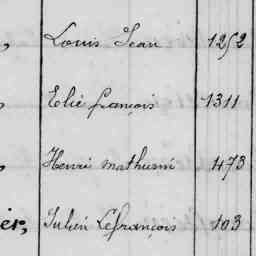 , Louis Jean 1252
, Elie françois 1311
, Henri mathurin 473
ier, Julien Lefrançois 103